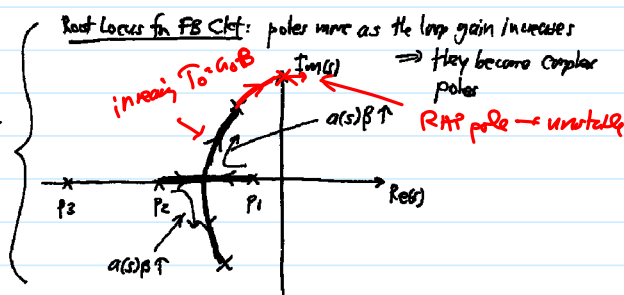 Root Locus for FB Ckt: poles move as the loop gain increases
⇒ they become complex
poles
Im(s)
increasing T₀=a₀β
a(s)β↑
RHP pole → unstable
p3
p2
p1
Re(s)
a(s)β↑